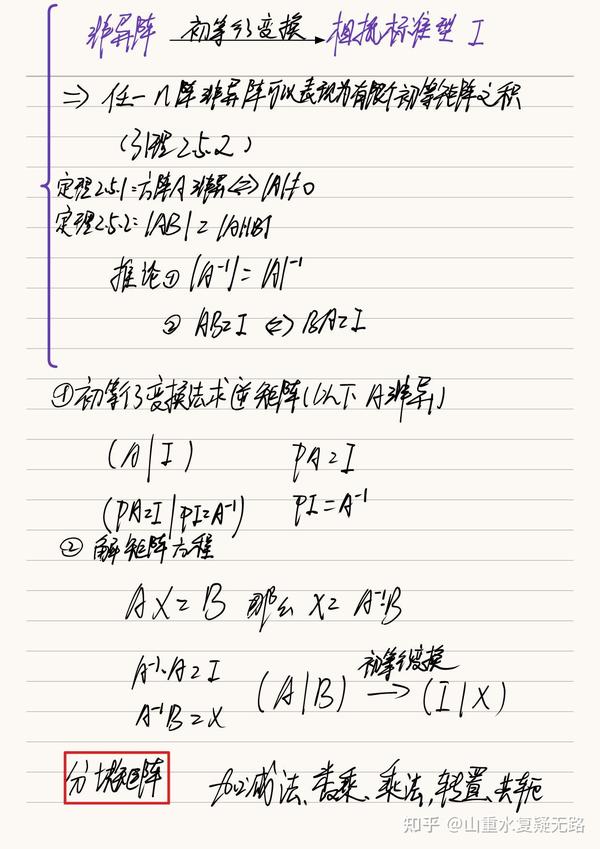 非异阵 初等行变换 → 相抵标准型 I
⇒ 任一 n 阶非异阵可以表现为有限个初等矩阵之积
(引理2.5.2)
定理2.5.1: 方阵A非异 ⇔ |A|≠0
定理2.5.2: |AB| = |A||B|
推论① |A⁻¹| = |A|⁻¹
② AB=I ⇔ BA=I
①初等行变换法求逆矩阵(以下 A非异)
(A|I) PA=I
(PA=I|PI=A⁻¹) PI=A⁻¹
② 解矩阵方程
AX=B 那么 X=A⁻¹B
A⁻¹·A=I
A⁻¹B=X (A|B) 初等行变换 → (I|X)
分块矩阵 加减法、数乘、乘法、转置、共轭
知乎 @山重水复疑无路